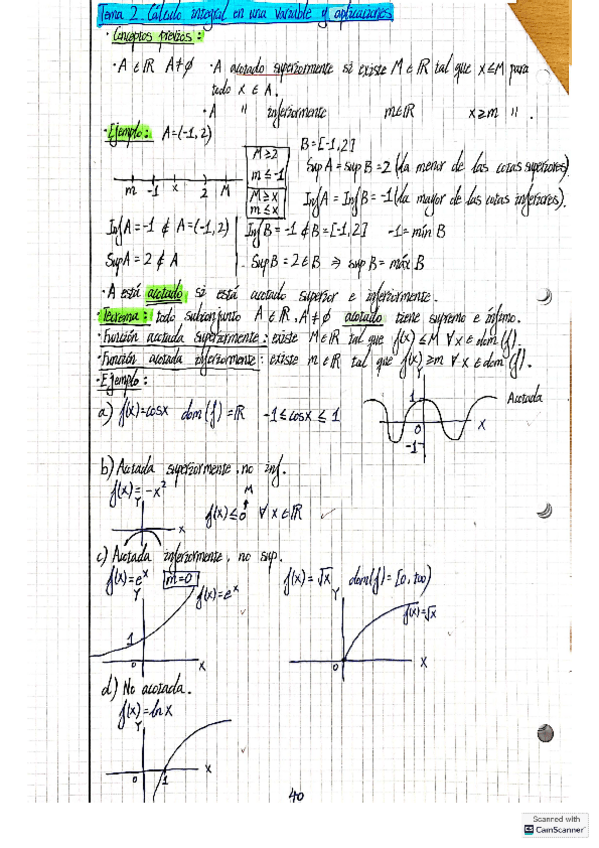 Tema 2. Cálculo integral en una variable y aplicaciones
· Conceptos previos:
· A ∈ ℝ A≠∅ · A acotado superiormente si existe M ∈ ℝ tal que x≤M para
todo x ∈ A.
· A " inferiormente m∈ℝ x≥m ".
· Ejemplo: A=(-1,2)
B=[-1,2]
M≥2
m≤-1
M≥x
m≤x
m -1 x 2 M
Sup A = sup B = 2 (la menor de las cotas superiores)
Inf A = Inf B = -1 (la mayor de las cotas inferiores).
Inf A = -1 ∉ A=(-1,2)
Inf B = -1 ∮ B=[-1,2] -1 = mín B
Sup A = 2 ∉ A
Sup B = 2 ∈ B ⇒ sup B = máx B
· A está acotado si está acotado superior e inferiormente.
· Teorema: todo subconjunto A ∈ ℝ, A≠∅ acotado tiene supremo e ínfimo.
· Función acotada superiormente: existe M∈ℝ tal que f(x) ≤ M ∀ x ∈ dom(f).
· Función acotada inferiormente: existe m∈ℝ tal que f(x) ≥ m ∀ x ∈ dom(f).
· Ejemplo:
a) f(x)=cosx dom(f)=ℝ -1≤cosx≤1
Y
1
0
-1
X
Acotada
b) Acotada superiormente, no inf.
f(x)=-x²
Y
X
M
f(x)≤0 ∀ x∈ℝ
c) Acotada inferiormente, no sup.
f(x)=eˣ m=0
Y
f(x)=eˣ
1
0
X
f(x)=√x dom(f)=[0,+∞)
Y
f(x)=√x
0
X
d) No acotada.
f(x)=ln x
Y
0
1
X
40
Scanned with
CamScanner